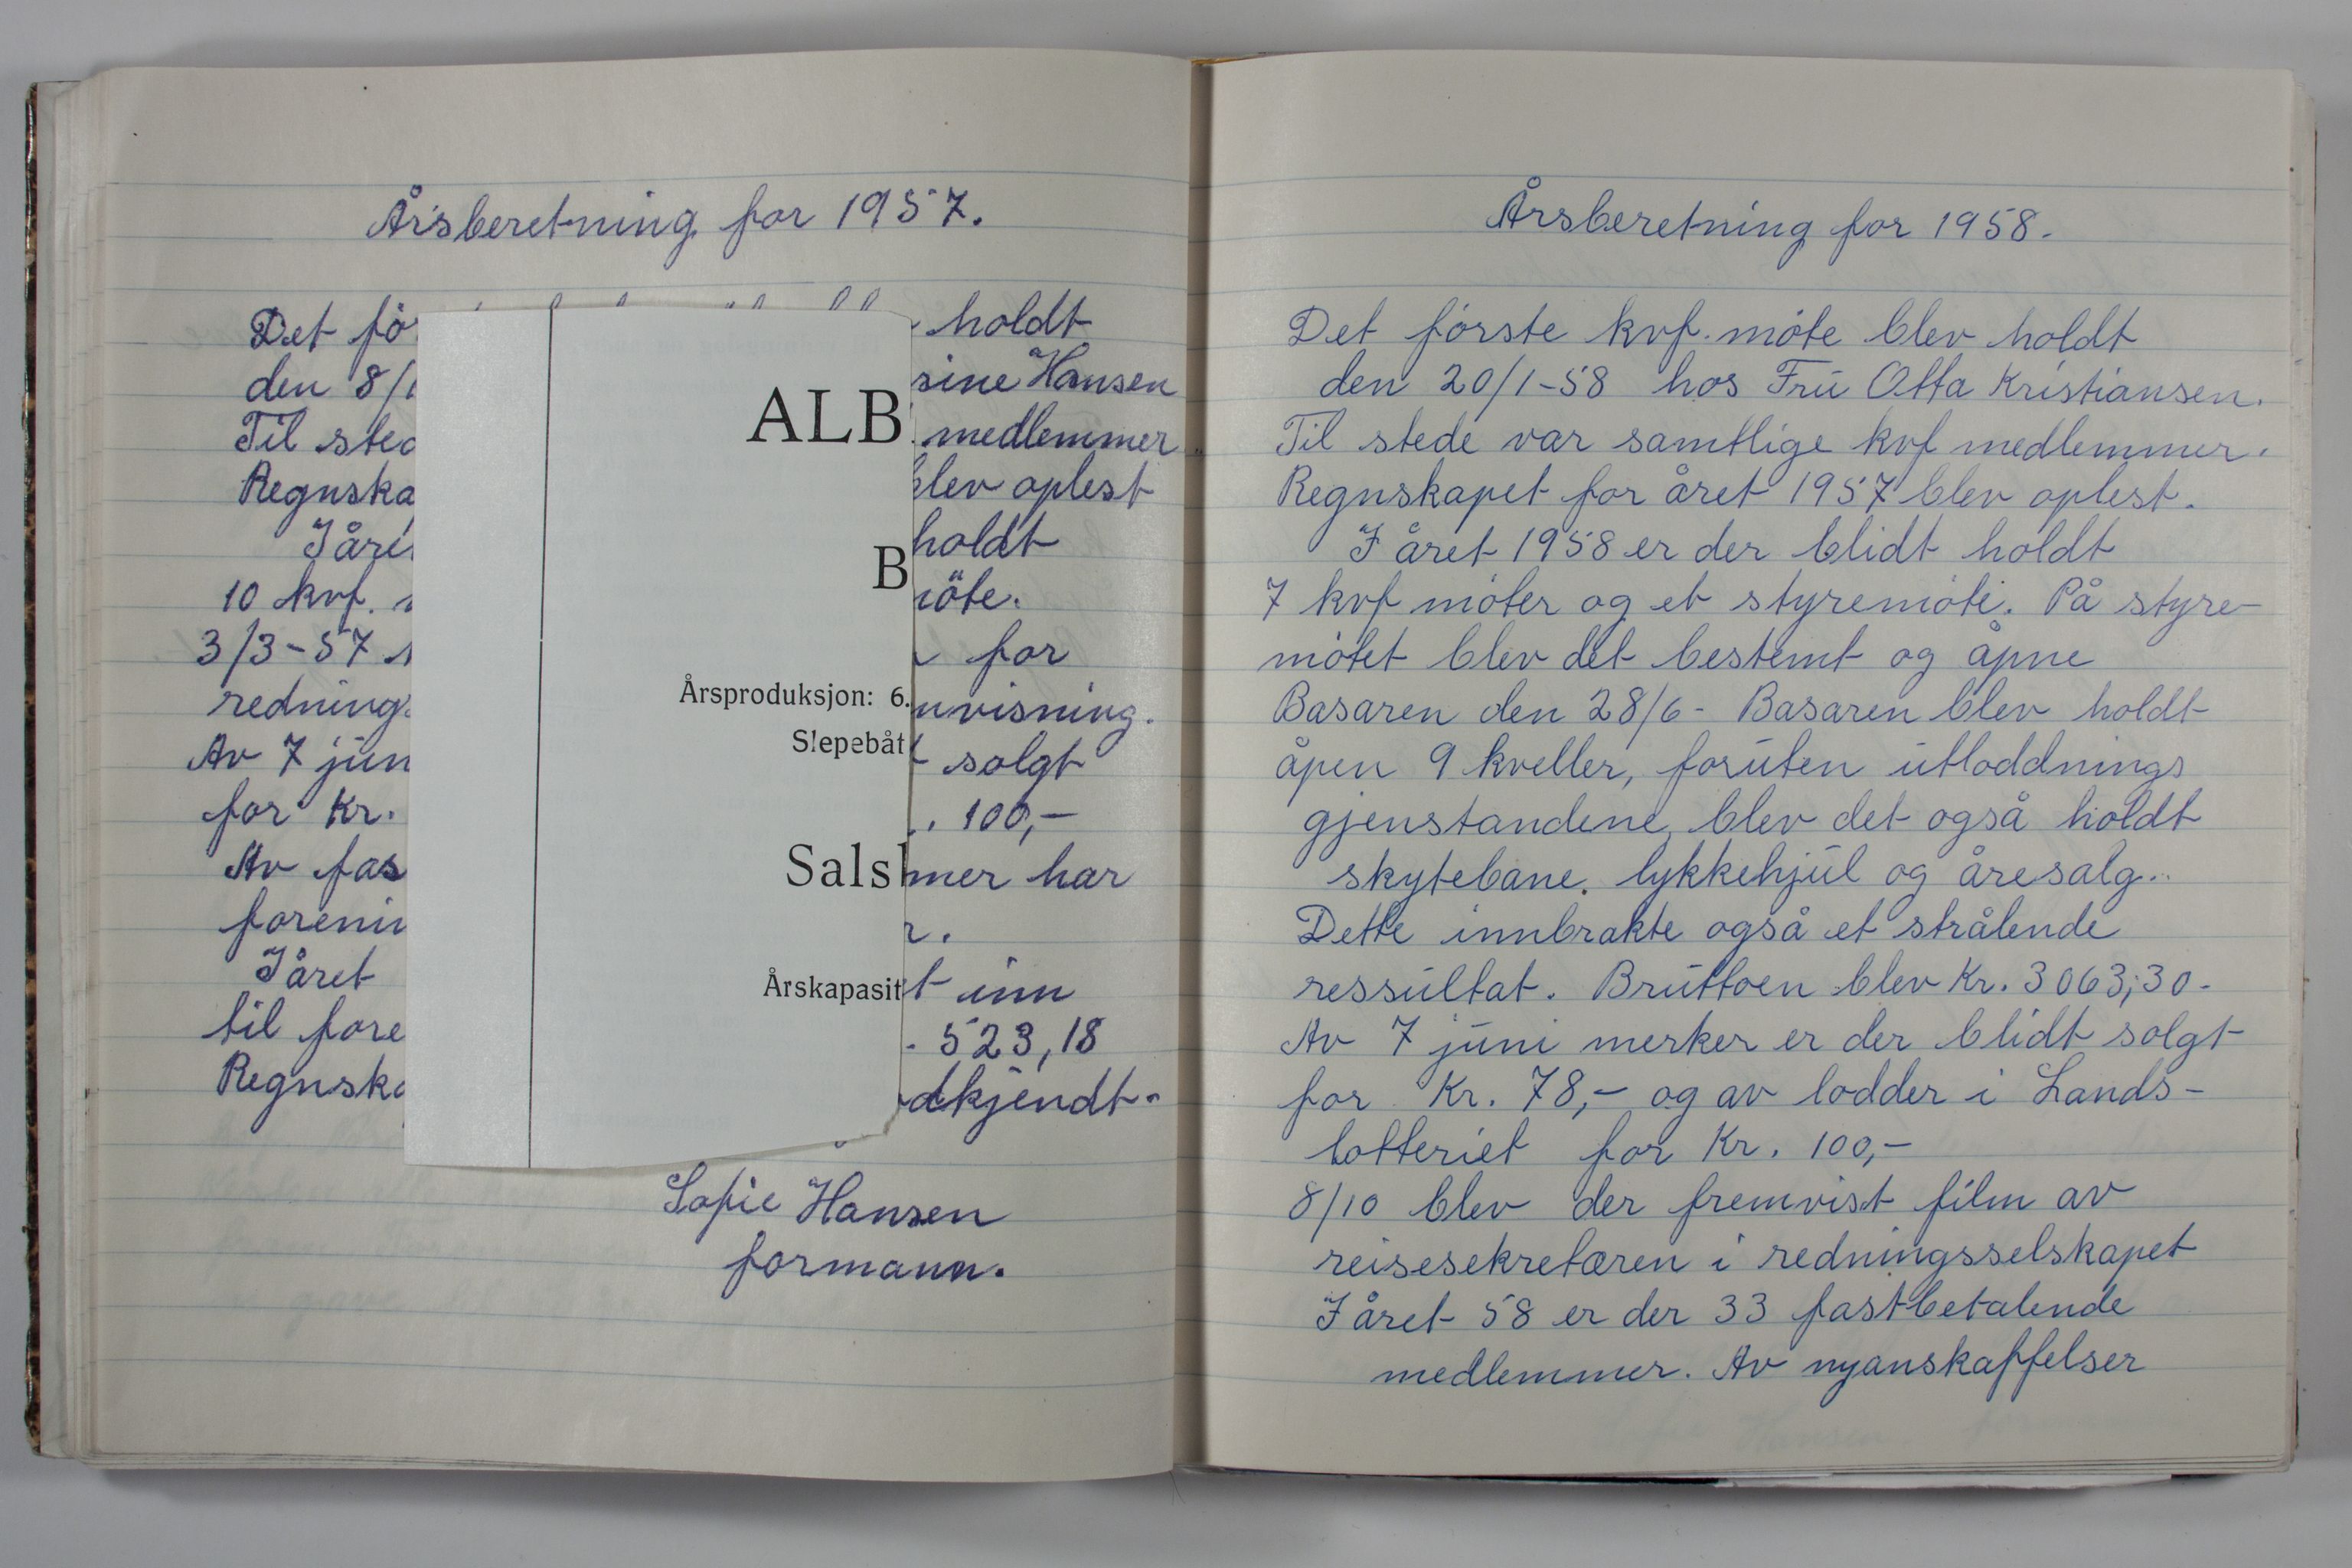 Årsberetning for 1957.
Det fö holdt
den 8/1 sine Hansen
Til sted medlemmer
Regnska blev oplest
I åre holdt
10 kvf. möte.
3/3-57 for
rednings nvisning.
Av 7 jun solgt
for Kr. 100,-
Av fas mer har
forenin r.
I året t inn
til fore 523,18
Regnska dkjendt.
Sofie Hansen
formann.
ALB
B
Årsproduksjon: 6.
Slepebåt
Sals
Årskapasit
Årsberetning for 1958.
Det første kvf. møte blev holdt
den 20/1-58 hos Fru Otta Kristiansen.
Til stede var samtlige kvf medlemmer.
Regnskapet for året 1957 blev oplest.
I året 1958 er der blidt holdt
7 kvf møter og et styremøte. På styre-
møtet blev det bestemt og åpne
Basaren den 28/6- Basaren blev holdt
åpen 9 kveller, foruten utloddnings
gjenstandene, blev det også holdt
skytebane. lykkehjul og åresalg..
Dette innbrakte også et strålende
ressultat. Bruttoen blev Kr. 3063,30-
Av 7 juni merker er der blidt solgt
for Kr. 78,- og av lodder i Lands-
lotteriet for Kr. 100,-
8/10 blev der fremvist film av
reisesekretæren i redningsselskapet
I året 58 er der 33 fastbetalende
medlemmer. Av nyanskaffelser